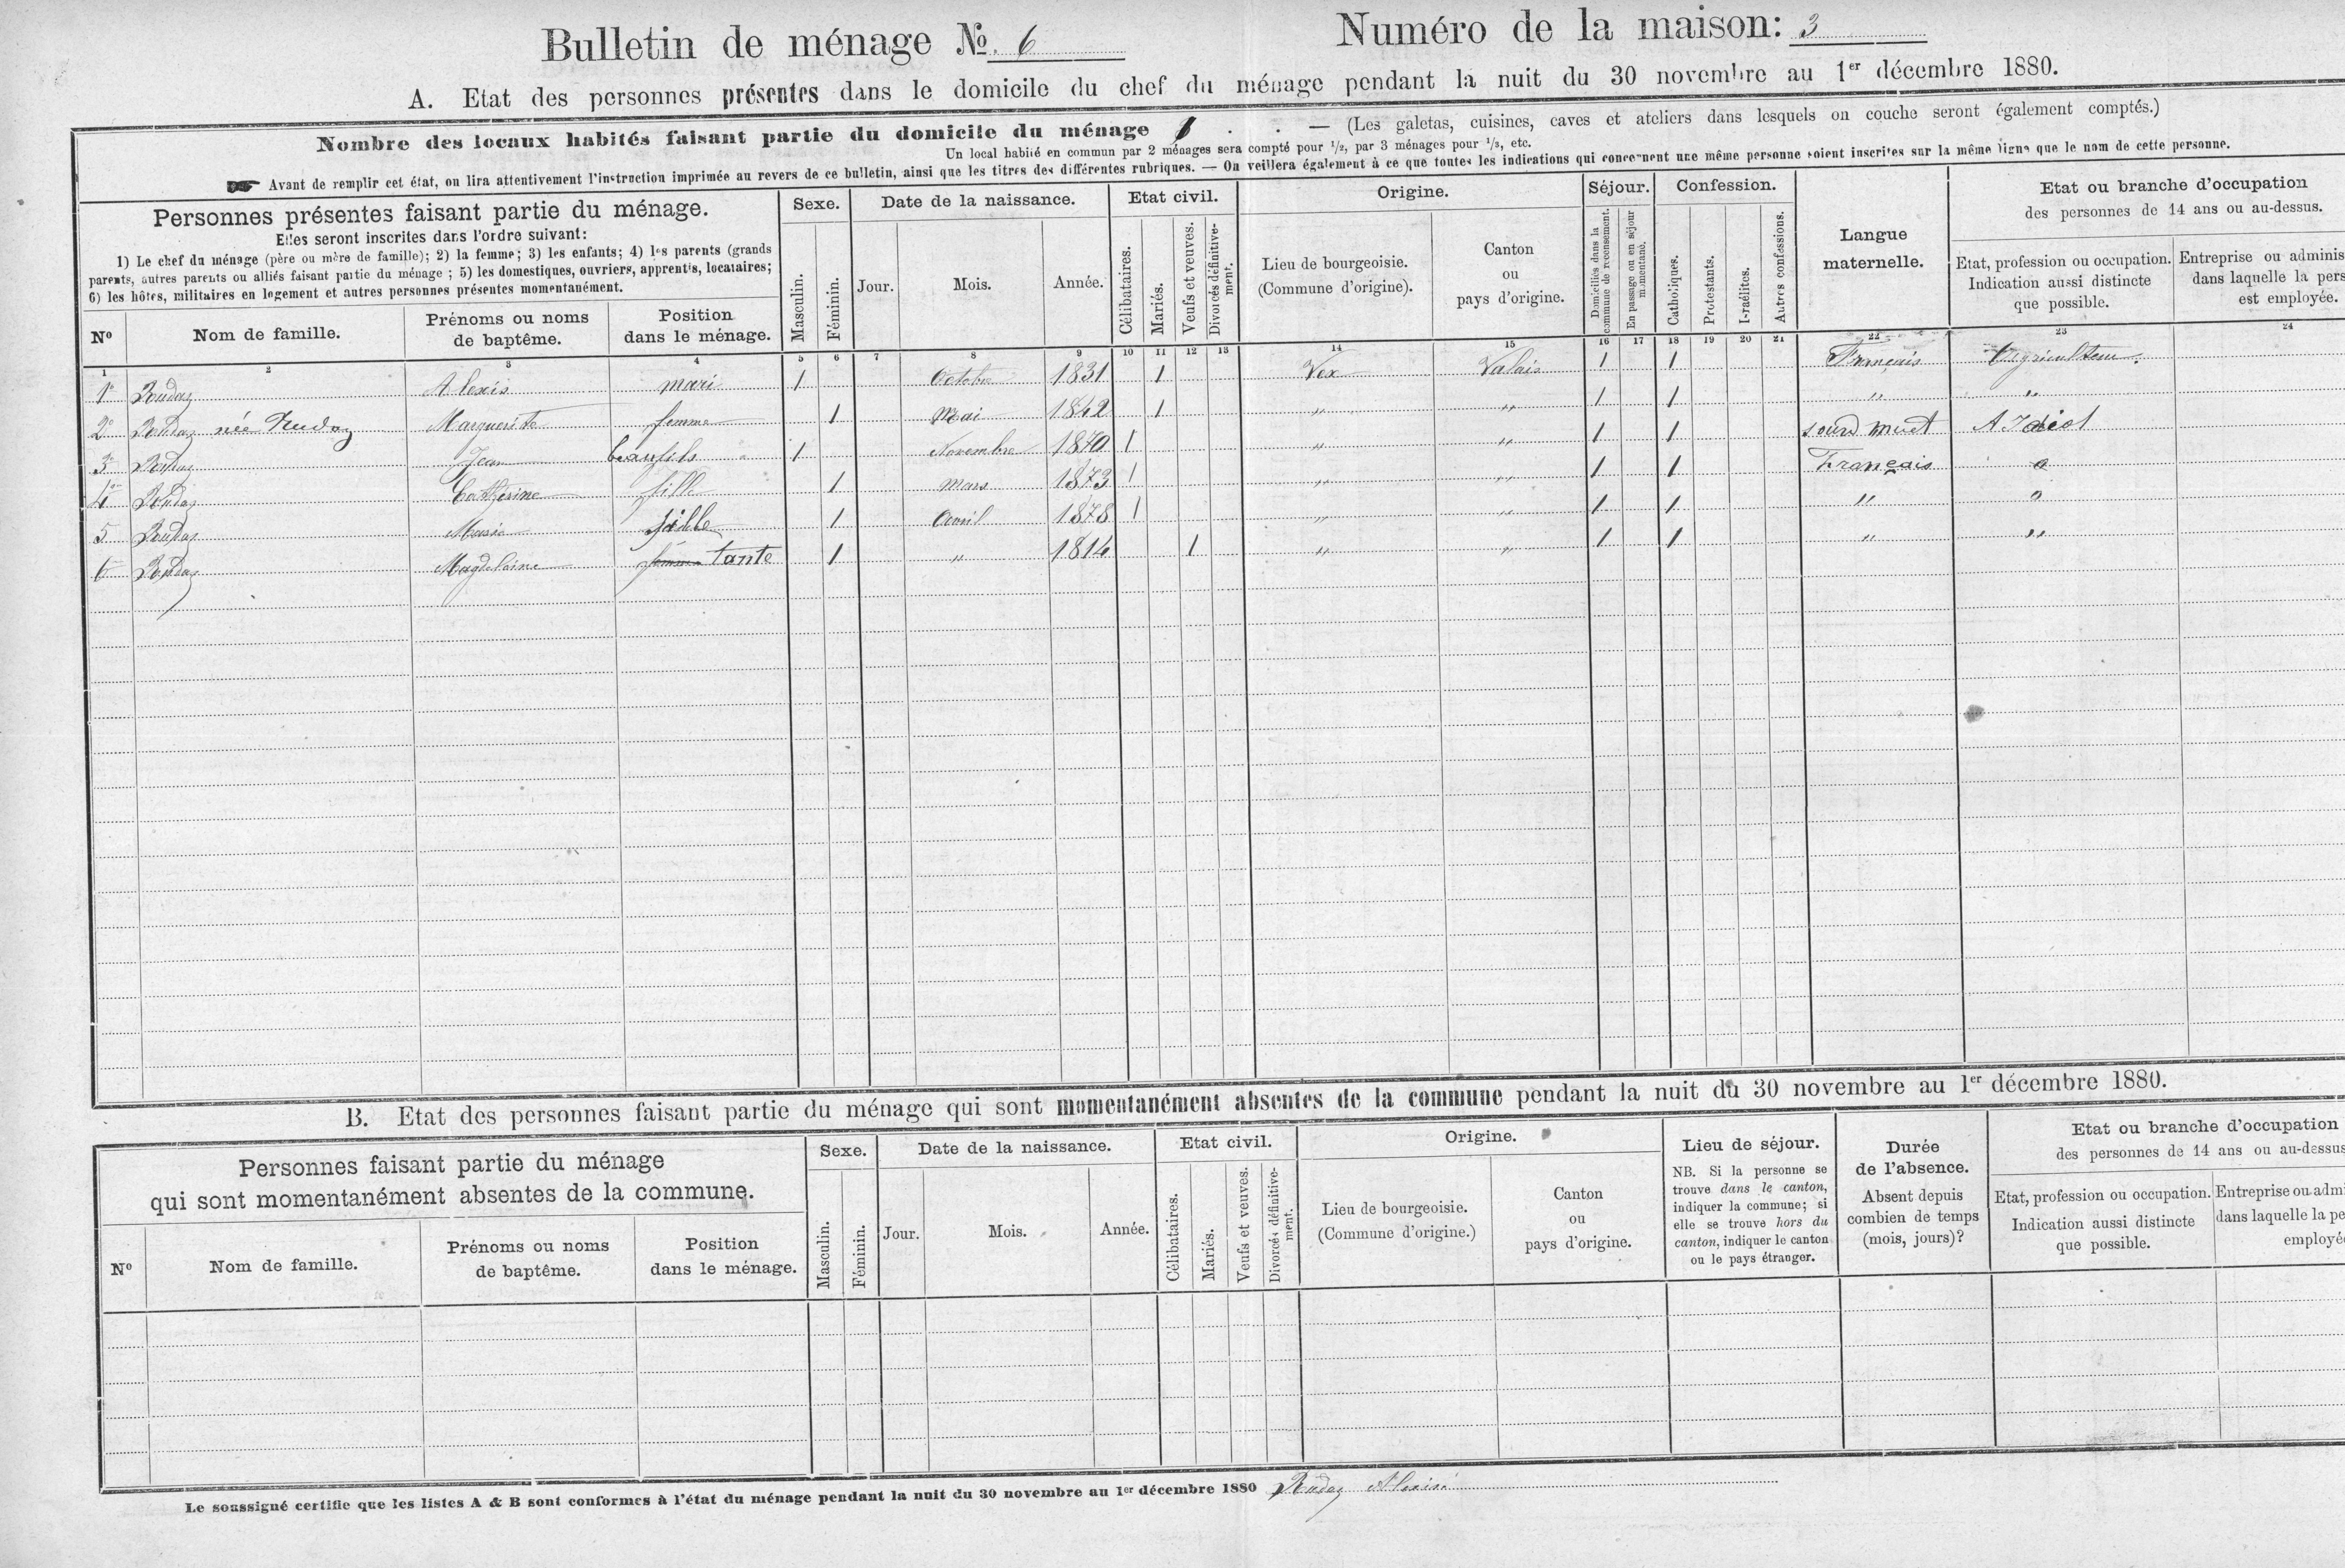 Bulletin de ménage No. 6 Numéro de la maison: 3
A. Etat des personnes présentes dans le domicile du chef du ménage pendant la nuit du 30 novembre au 1er décembre 1880.
Nombre des locaux habités faisant partie du domicile du ménage 1 . . — (Les galetas, cuisines, caves et ateliers dans lesquels on couche seront également comptés.)
Un local habité en commun par 2 ménages sera compté pour 1/2, par 3 ménages pour 1/3, etc.
Avant de remplir cet état, on lira attentivement l'instruction imprimée au revers de ce bulletin, ainsi que les titres des différentes rubriques. — On veillera également à ce que toutes les indications qui concernent une même personne soient inscrites sur la même ligne que le nom de cette personne.
Personnes présentes faisant partie du ménage.
Elles seront inscrites dans l'ordre suivant:
1) Le chef du ménage (père ou mère de famille); 2) la femme; 3) les enfants; 4) les parents (grands
parents, autres parents ou alliés faisant partie du ménage ; 5) les domestiques, ouvriers, apprentis, locataires;
6) les hôtes, militaires en logement et autres personnes présentes momentanément.
No Nom de famille. Prénoms ou noms de baptême. Position dans le ménage.
Sexe. Masculin. Féminin.
Date de la naissance. Jour. Mois. Année.
Etat civil. Célibataires. Mariés. Veufs et veuves. Divorcés définitivement.
Origine. Lieu de bourgeoisie. (Commune d'origine). Canton ou pays d'origine.
Séjour. Domiciliés dans la commune de recensement. En passage ou en séjour momentané.
Confession. Catholiques. Protestants. Israélites. Autres confessions.
Langue maternelle.
Etat ou branche d'occupation
des personnes de 14 ans ou au-dessus.
Etat, profession ou occupation. Indication aussi distincte que possible.
Entreprise ou adminis
dans laquelle la pers
est employée.
1 2 3 4 5 6 7 8 9 10 11 12 13 14 15 16 17 18 19 20 21 22 23 24
1º Rudaz Alexis mari 1 Octobre 1831 1 Vex Valais 1 1 Français Agriculteur.
2º Rudaz née Rudaz Marguerite femme 1 Mai 1842 1 " " 1 1 " "
3º Rudaz Jean beaufils 1 Novembre 1870 1 " " 1 1 sourd muet A Idiot
4º Rudaz Catherine fille 1 Mars 1873 1 " " 1 1 Français
5 Rudaz Marie fille 1 Avril 1878 1 " " 1 1 " "
6 Rudaz Magdelaine femme tante 1 " 1814 1 " " 1 1 " "
B. Etat des personnes faisant partie du ménage qui sont momentanément absentes de la commune pendant la nuit du 30 novembre au 1er décembre 1880.
Personnes faisant partie du ménage
qui sont momentanément absentes de la commune.
No Nom de famille. Prénoms ou noms de baptême. Position dans le ménage.
Sexe. Masculin. Féminin.
Date de la naissance. Jour. Mois. Année.
Etat civil. Célibataires. Mariés. Veufs et veuves. Divorcés définitivement.
Origine. Lieu de bourgeoisie. (Commune d'origine.) Canton ou pays d'origine.
Lieu de séjour.
NB. Si la personne se
trouve dans le canton,
indiquer la commune; si
elle se trouve hors du
canton, indiquer le canton
ou le pays étranger.
Durée
de l'absence.
Absent depuis
combien de temps
(mois, jours)?
Etat ou branche d'occupation
des personnes de 14 ans ou au-dessus
Etat, profession ou occupation. Indication aussi distincte que possible.
Entreprise ou admi
dans laquelle la pe
employé
Le soussigné certifie que les listes A & B sont conformes à l'état du ménage pendant la nuit du 30 novembre au 1er décembre 1880 Rudaz Alexis